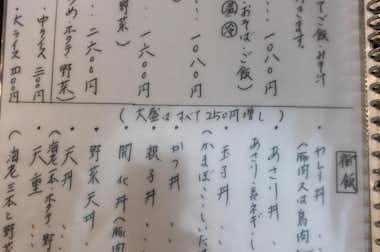 てご飯・みそ汁
きます。
・・・一〇八〇円
・おそば・ご飯)
温 冷
・・・一〇八〇円
・・一六〇〇円
野菜)
・・二六〇〇円
ホタテ 野菜)
・中ライス 二〇〇円
・大ライス 四〇〇円
(大盛はすべて250円増し)
御飯
(豚肉又は鳥肉
・あさり丼
・玉子丼
(かまぼこ・しいたけ
・かつ丼
・親子丼
・開化丼(豚肉
・野菜天丼
・天丼
(海老二本・ホタテ・野
・天重
(海老三本と野